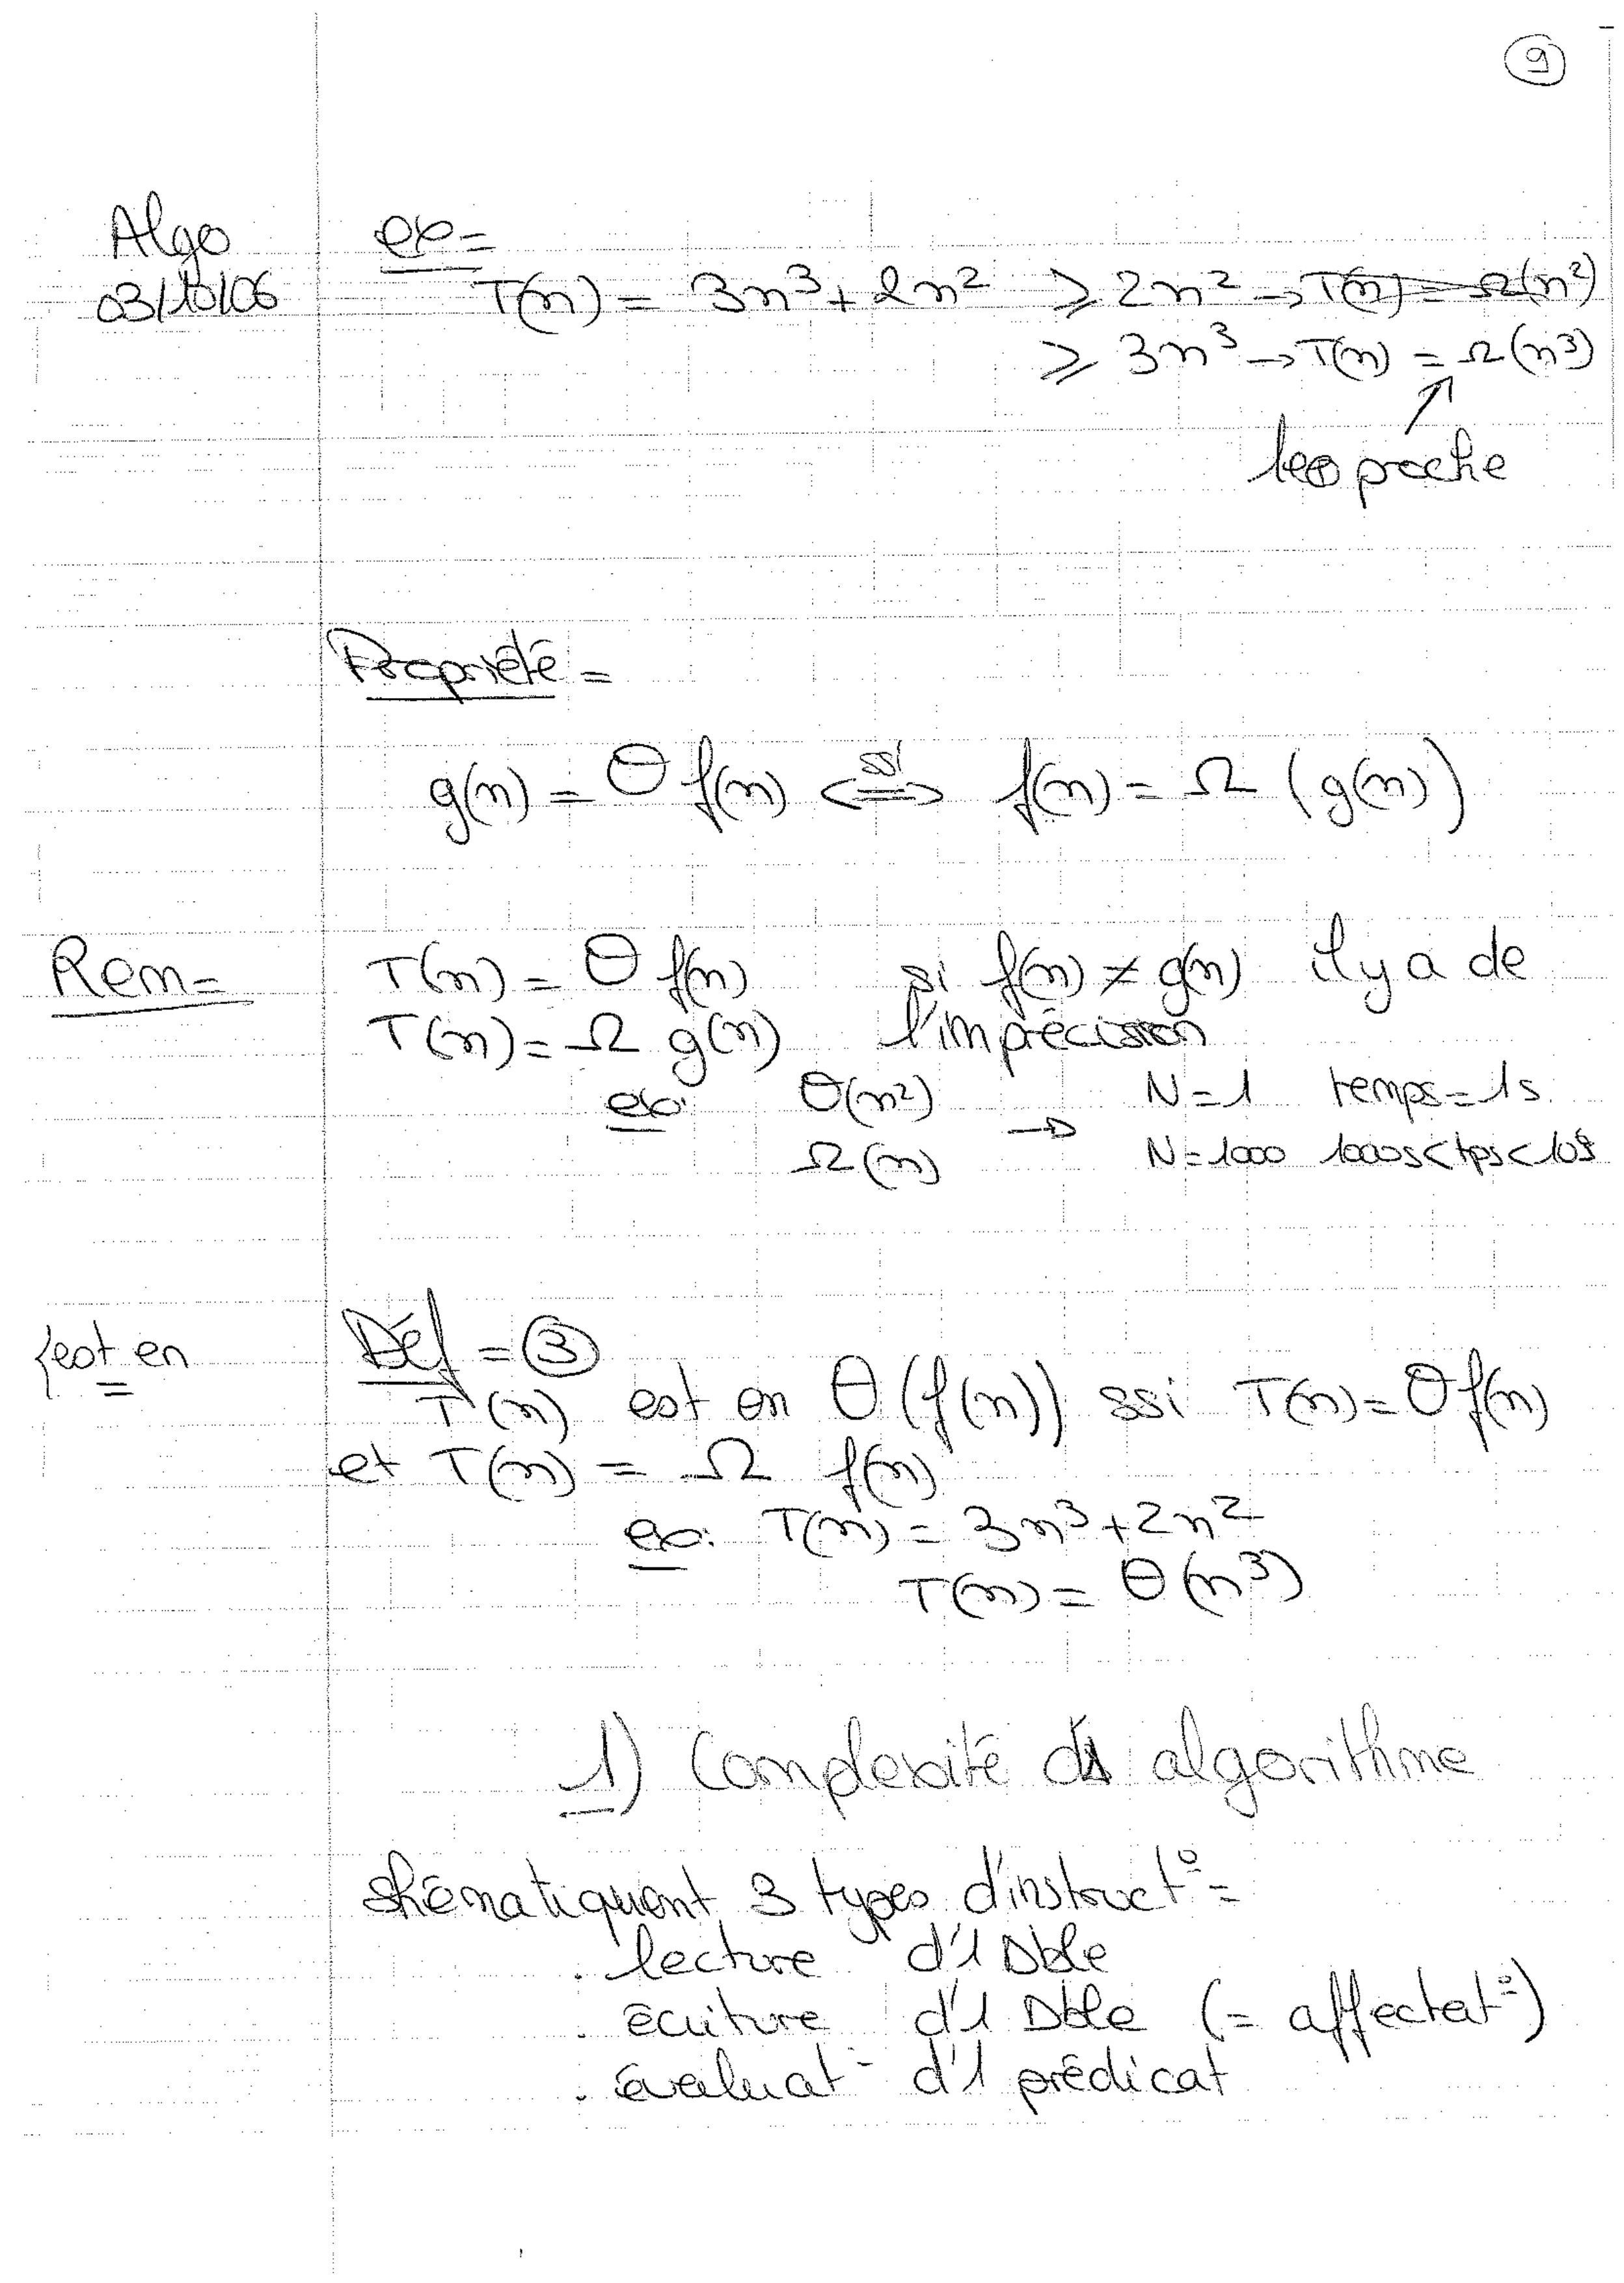 9
Algo
03/10/06
ex =
T(n) = 3n³ + 2n² ≥ 2n² → T(n) = Ω(n²)
≥ 3n³ → T(n) = Ω(n³)
le ⊕ proche
Propriété =
g(n) = Θ f(n) <=ssi=> f(n) = Ω (g(n))
Rem = T(n) = Θ f(n) si f(n) ≠ g(n) il y a de
T(n) = Ω g(n) l'imprécision
ex: Θ(n²) → N = 1 temps = 1s
Ω(n) N = 1000 1000s < tps <
est en Déf = ③
T(n) est en Θ(f(n)) ssi T(n) = Θ f(n)
et T(n) = Ω f(n)
ex: T(n) = 3n³ + 2n²
T(n) = Θ(n³)
1) Complexité algorithme
shématiquent 3 types d'instruct° =
. lecture d'1 Dble
. écriture d'1 Dble (= affectat°)
. évaluat- d'1 prédicat